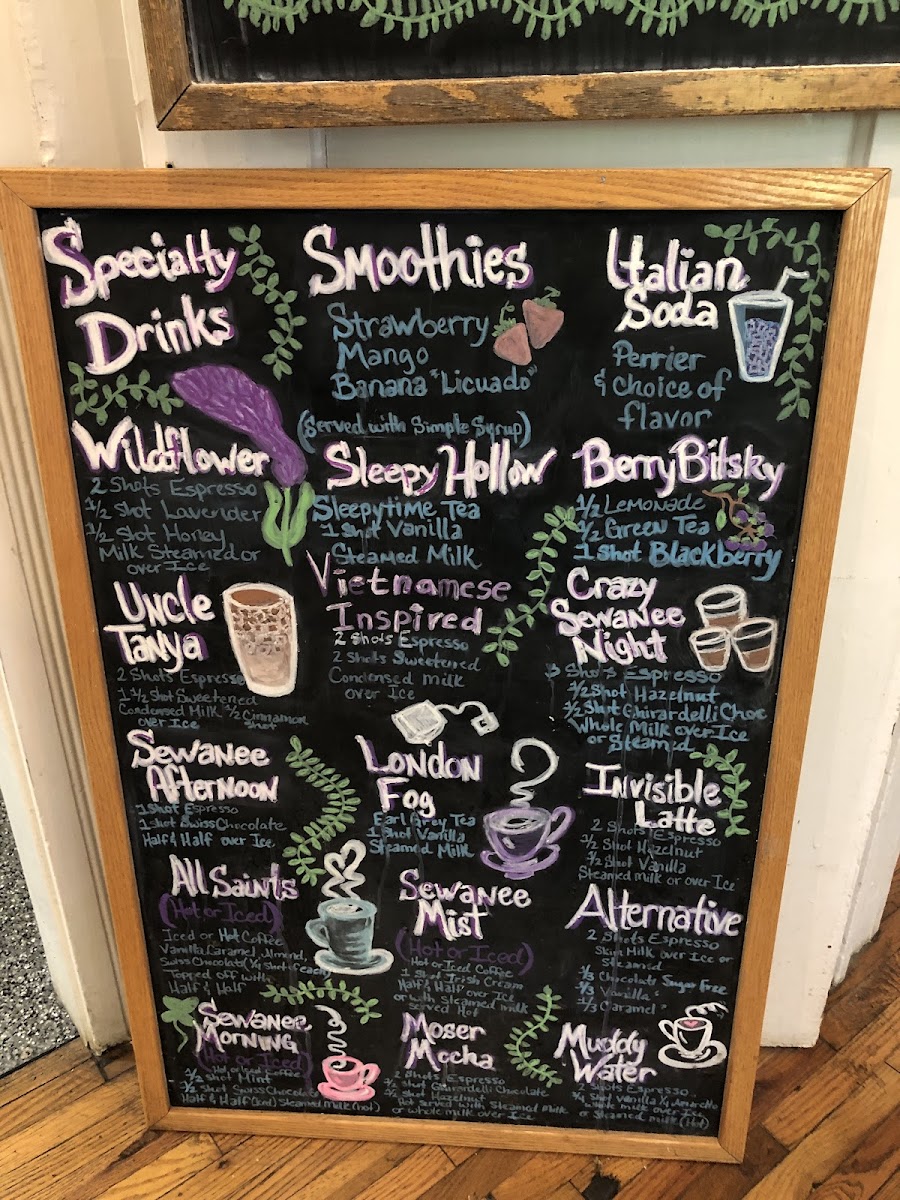 Specialty
Drinks
Smoothies
Strawberry
Mango
Banana "Licuado"
(Served with Simple Syrup)
Italian
Soda
Perrier
& Choice of
flavor
Wildflower
2 Shots Espresso
1/2 Shot Lavender
1/2 Shot Honey
Milk Steamed or
over Ice
Sleepy Hollow
Sleepytime Tea
1 shot Vanilla
Steamed Milk
Berry Bilsky
1/2 Lemonade
1/2 Green Tea
1 shot Blackberry
Uncle
Tanya
2 Shots Espresso
1 1/2 Shot Sweetened
Condensed Milk 1/2 Cinnamon
over Ice shot
Vietnamese
Inspired
2 Shots Espresso
2 Shots Sweetened
Condensed milk
over Ice
Crazy
Sewanee
Night
3 Shots Espresso
1/2 Shot Hazelnut
1/2 Shot Ghirardelli Choc
Whole Milk over Ice
or Steamed
Sewanee
Afternoon
1 Shot Espresso
1 Shot Swiss Chocolate
Half & Half over Ice
London
Fog
Earl Grey Tea
1 Shot Vanilla
Steamed Milk
Invisible
Latte
2 Shots Espresso
1/2 Shot Hazelnut
1/2 Shot Vanilla
Steamed milk or over Ice
All Saints
(Hot or Iced)
Iced or Hot Coffee
Vanilla, Caramel, Almond,
Swiss Chocolate (1/4 Shot of each)
Topped off with
Half & Half
Sewanee
Mist
(Hot or Iced)
Hot or Iced Coffee
1 Shot Irish Cream
Half & Half over Ice
or with steamed milk
served Hot
Alternative
2 Shots Espresso
Skim Milk over Ice or
Steamed
1/3 Chocolate Sugar Free
1/3 Vanilla "
1/3 Caramel "
Sewanee
Morning
(Hot or Iced)
Hot or Iced Coffee
1/2 Shot Mint
1/2 Shot Swiss Chocolate
Half & Half (Iced) Steamed Milk (hot)
Moser
Mocha
2 Shots Espresso
1/2 Shot Ghirardelli Chocolate
1/2 Shot Hazelnut
Hot served with Steamed Milk
or whole milk over Ice
Muddy
Water
2 Shots Espresso
1/4 Shot Vanilla 1/4 Amaretto
whole milk over Ice
or Steamed milk (Hot)